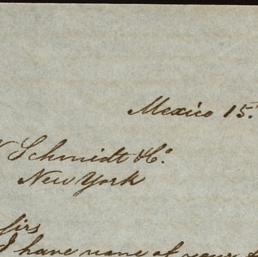 Mexico 15.
Schmidt & Co.
New York
Sirs
I have none of your